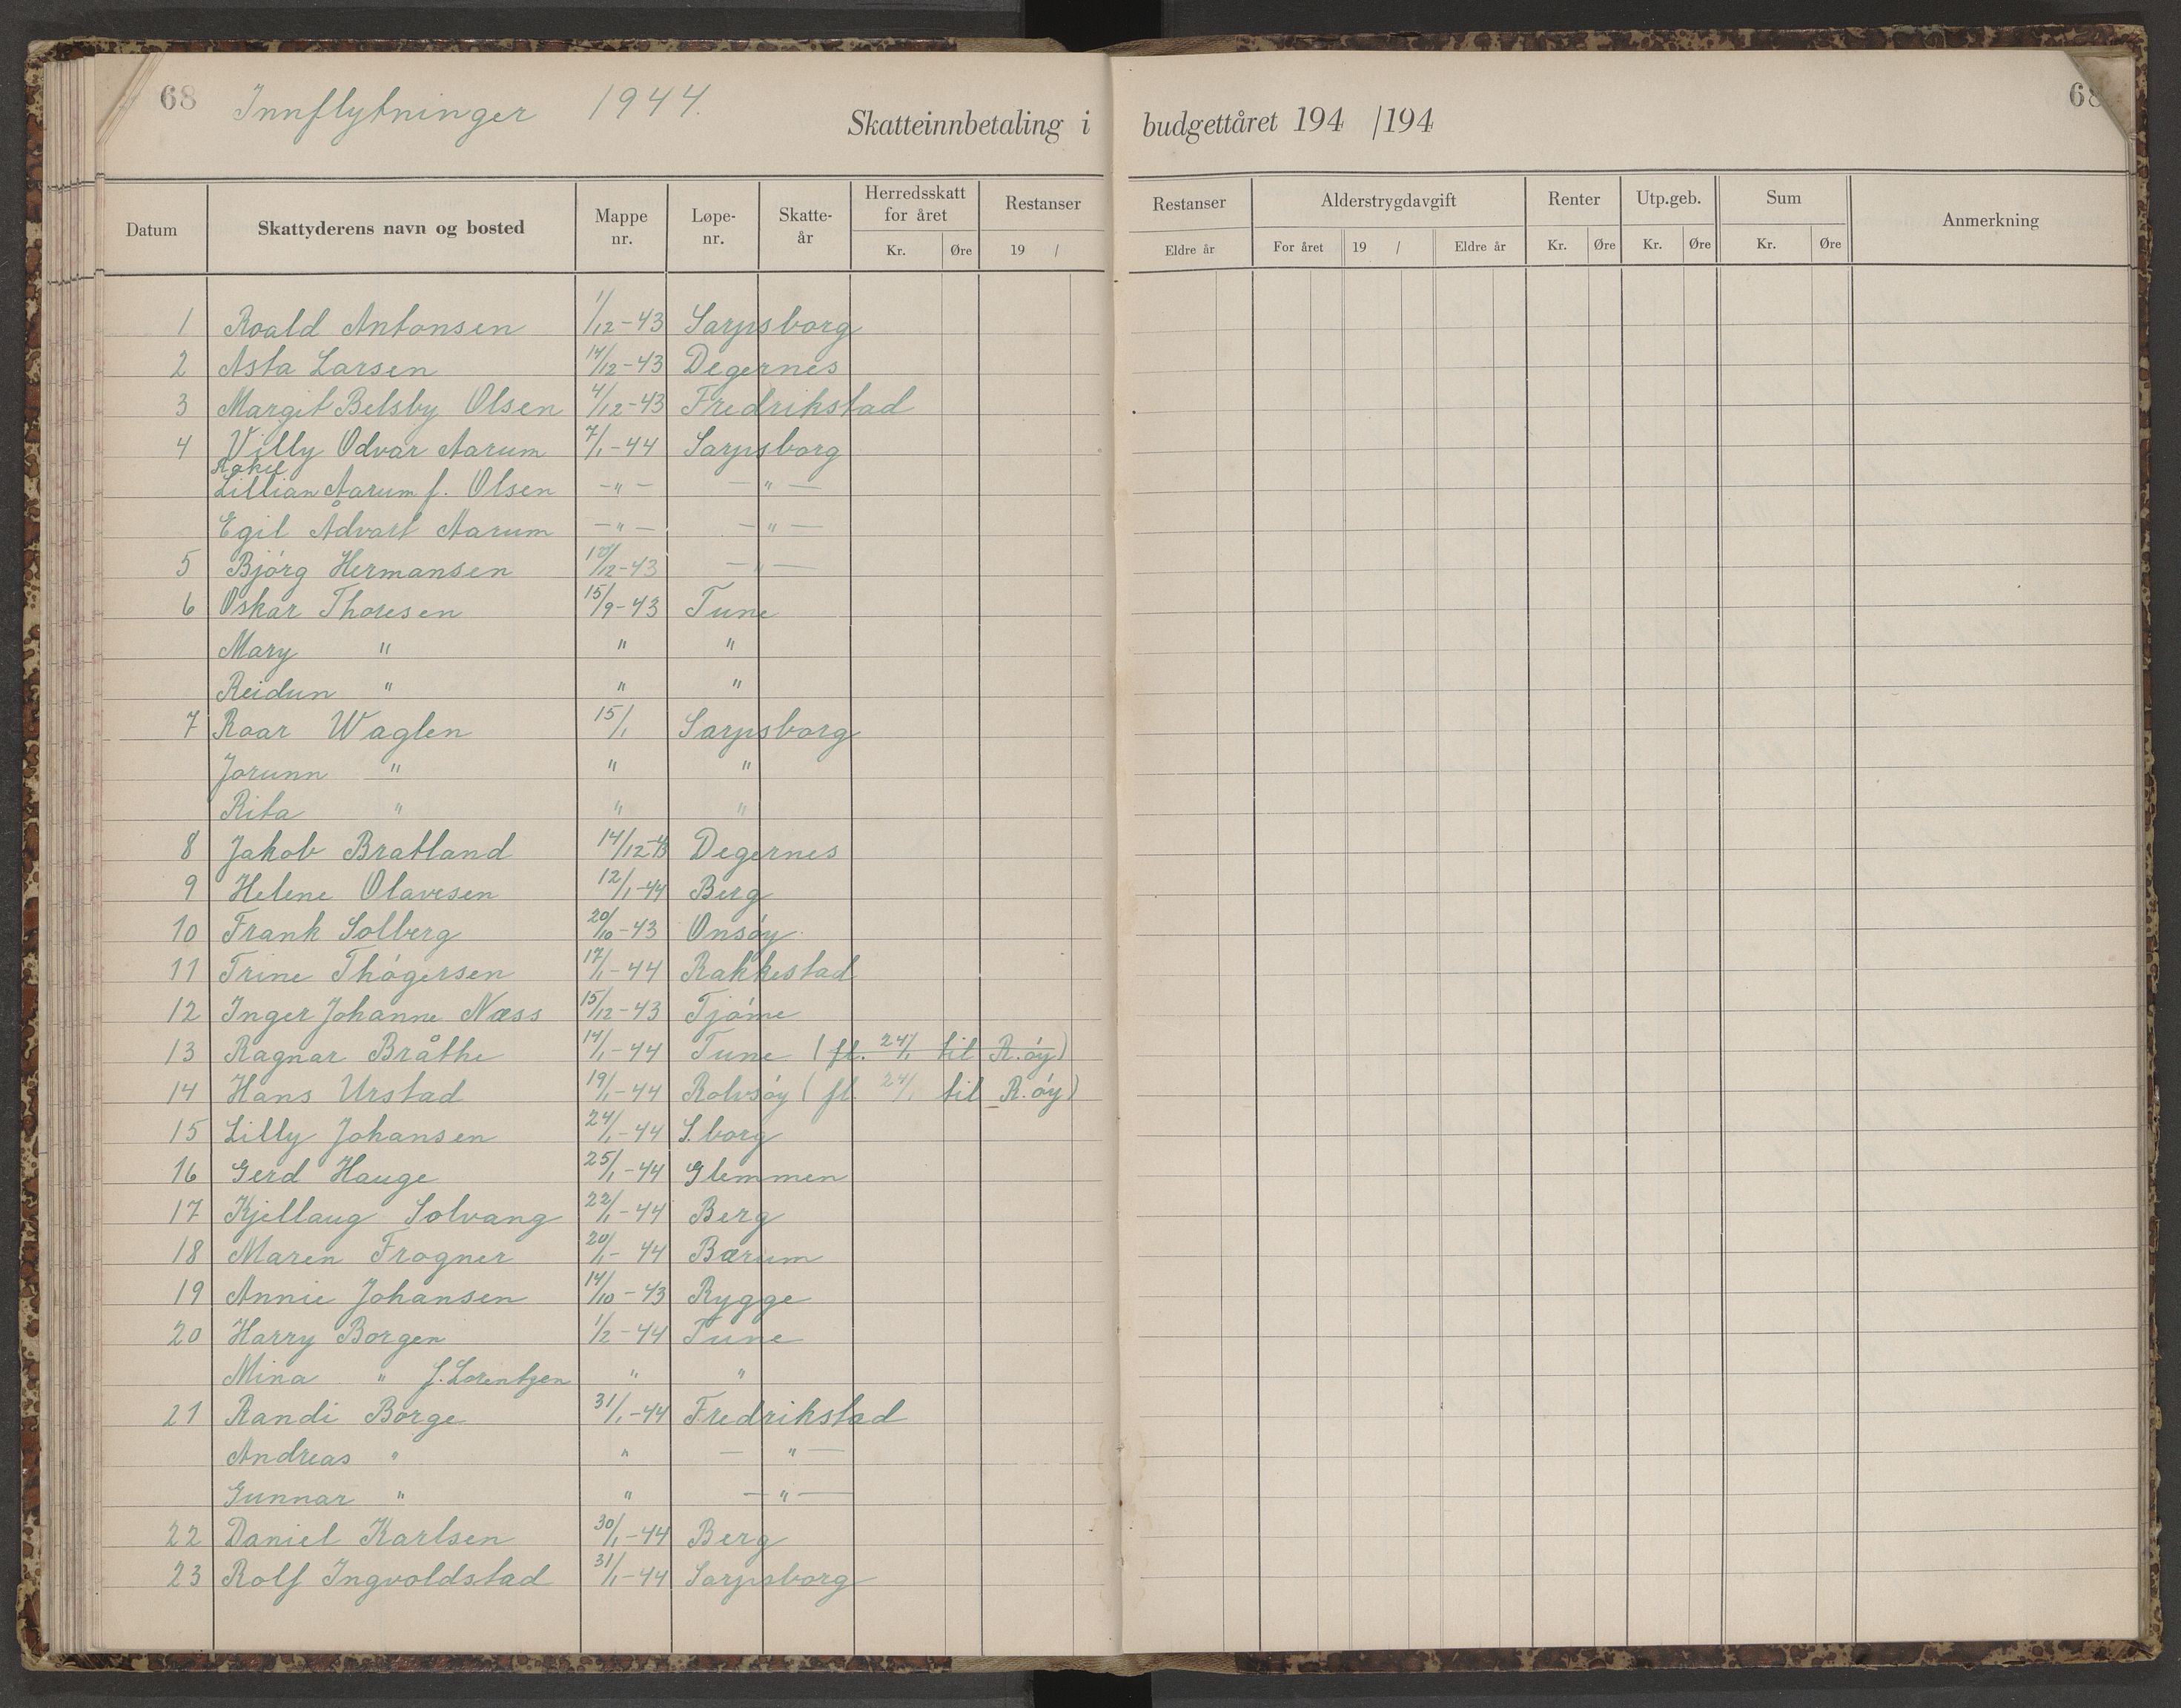 68 Innflytninger 1944.
Skatteinnbetaling i budgettåret 194 /194
68
Datum Skattyderens navn og bosted Mappe nr. Løpe-nr. Skatte-år Herredsskatt for året Kr. Øre Restanser 19 / Restanser Eldre år Alderstrygdavgift For året 19 / Eldre år Renter Kr. Øre Utp.geb. Kr. Øre Sum Kr. Øre Anmerkning
1 Roald Antonsen 1/12-43 Sarpsborg
2 Asta Larsen 14/12-43 Degernes
3 Margit Belsby Olsen 4/12-43 Fredrikstad
4 Villy Odvar Aarum 7/1-44 Sarpsborg
Lillian Aarum f. Olsen -"- -"-
Egil Ådvart Aarum -"- -"-
5 Bjørg Hermansen /12-43 -"-
6 Oskar Thoresen 15/9-43 Tune
Mary " " "
Reidun " " "
7 Roar Waglen 15/1 Sarpsborg
Jorunn " " "
Rita " " "
8 Jakob Bratland 14/12-43 Degernes
9 Helene Olavesen 12/1-44 Berg
10 Frank Solberg 20/10-43 Onsøy
11 Trine Thøgersen 17/1-44 Rakkestad
12 Inger Johanne Næss 15/12-43 Tjøme
13 Ragnar Bråthe 14/1-44 Tune (fl. 24/1 til R.øy)
14 Hans Urstad 19/1-44 Rolvsøy (fl. 24/1 til R.øy)
15 Lilly Johansen 24/1-44 S.borg
16 Gerd Hauge 25/1-44 Glemmen
17 Kjellaug Solvang 22/1-44 Berg
18 Maren Frogner 20/1-44 Bærum
19 Annie Johansen 14/10-43 Rygge
20 Harry Borgen 1/2-44 Tune
Mina " f. Lorentzen " "
21 Randi Borge 31/1-44 Fredrikstad
Andreas " " -"-
Gunnar " " -"-
22 Daniel Karlsen 30/1-44 Berg
23 Rolf Ingvoldstad 31/1-44 Sarpsborg